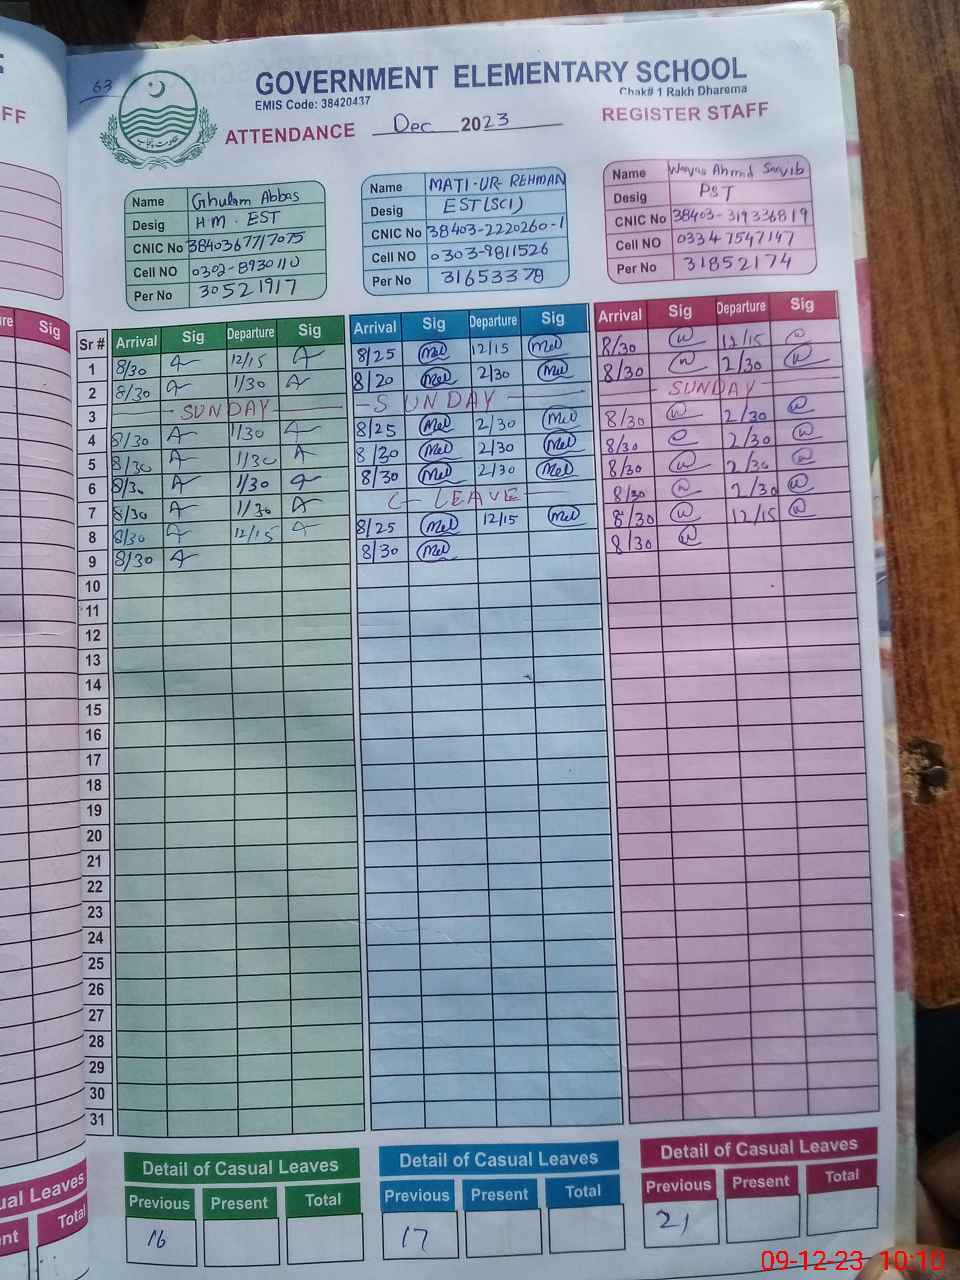 63
GOVERNMENT ELEMENTARY SCHOOL
EMIS Code: 38420437
Chak# 1 Rakh Dharema
ATTENDANCE Dec 2023 REGISTER STAFF
FF
Name Ghulam Abbas
Desig HM. EST
CNIC No 3840367717075
Cell NO
Per No 30521917
Name MATI-UR-REHMAN
Desig EST(SCI)
CNIC No 38403-2220260-1
Cell NO 0303-9811526
Per No 31653378
Name Ahmad
Desig PST
CNIC No 38403-319336819
Cell NO 03347547147
Per No 31852174
Sig
Sr # Arrival Sig Departure Sig Arrival Sig Departure Sig Arrival Sig Departure Sig
1 8/30 12/15 8/25 12/15 8/30 12/15
2 8/30 1/30 8/20 2/30 8/30 2/30
3 SUNDAY SUNDAY SUNDAY
4 8/30 1/30 8/25 2/30 8/30 2/30
5 8/30 1/30 8/30 2/30 8/30 2/30
6 8/30 1/30 8/30 2/30 8/30 2/30
7 8/30 1/30 C- LEAVE 8/30 2/30
8 8/30 12/15 8/25 12/15 8/30 12/15
9 8/30 8/30 8/30
10
11
12
13
14
15
16
17
18
19
20
21
22
23
24
25
26
27
28
29
30
31
ual Leaves
Total
Detail of Casual Leaves
Previous Present Total
16
Detail of Casual Leaves
Previous Present Total
17
Detail of Casual Leaves
Previous Present Total
21
09-12-23 10:10